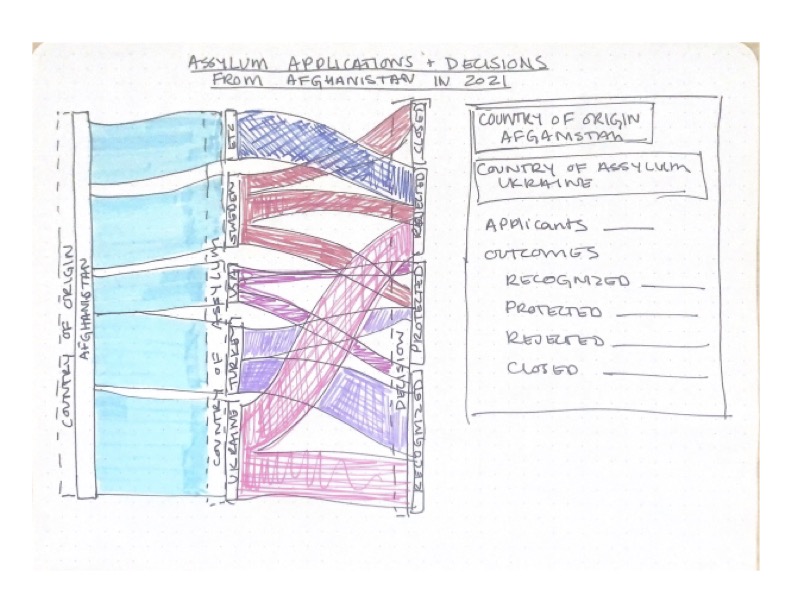 ASSYLUM APPLICATIONS + DECISIONS
FROM AFGHANISTAN IN 2021
COUNTRY OF ORIGIN
AFGHANISTAN
COUNTRY OF ASSYLUM
ETC
SWEDEN
USA
TURKEY
UKRAINE
DECISION
CLOSED
REJECTED
PROTECTED
RECOGNIZED
COUNTRY OF ORIGIN
AFGANISTAN
COUNTRY OF ASSYLUM
UKRAINE
APPLICANTS
OUTCOMES
RECOGNIZED
PROTECTED
REJECTED
CLOSED